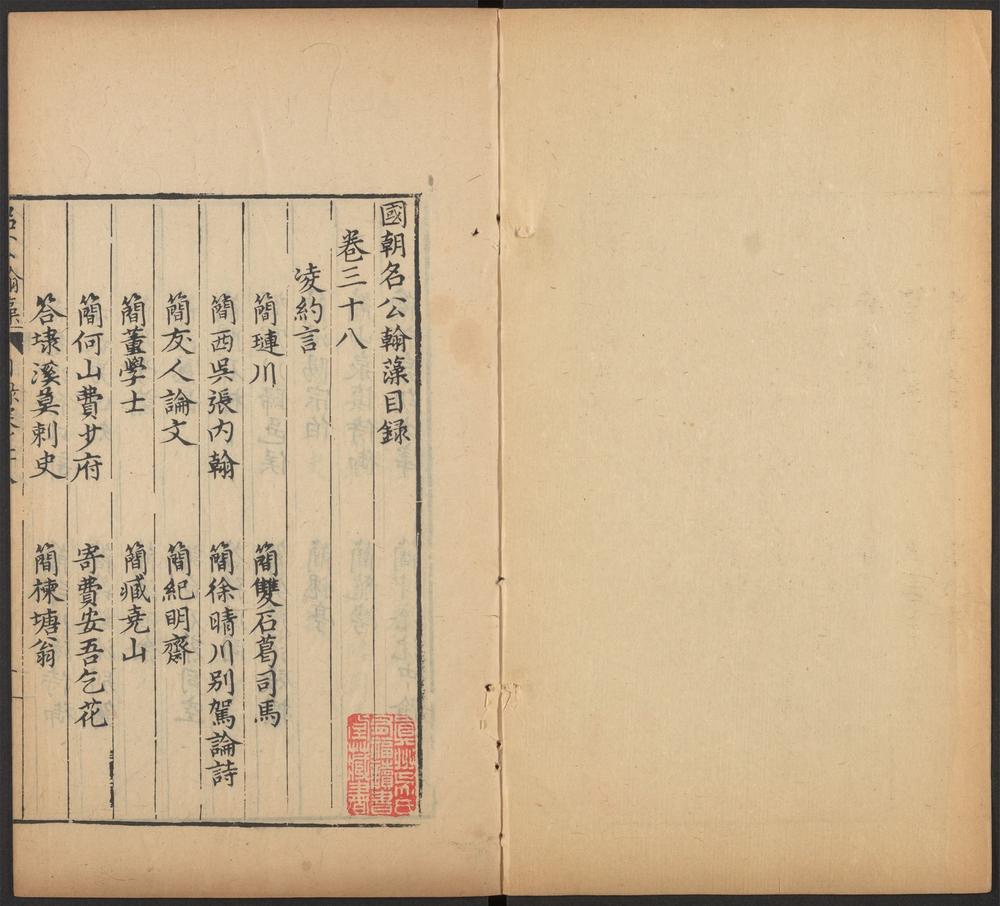 國朝名公翰藻目録
卷三十八
凌約言
簡璉川
簡雙石葛司馬
簡西吳張内翰
簡徐晴川别駕論詩
簡友人論文
簡紀明齋
簡董學士
簡臧堯山
簡何山費少府
寄費安吾乞花
答埭溪莫刺史
簡楝塘翁
真州吳氏
有福讀書
堂藏書